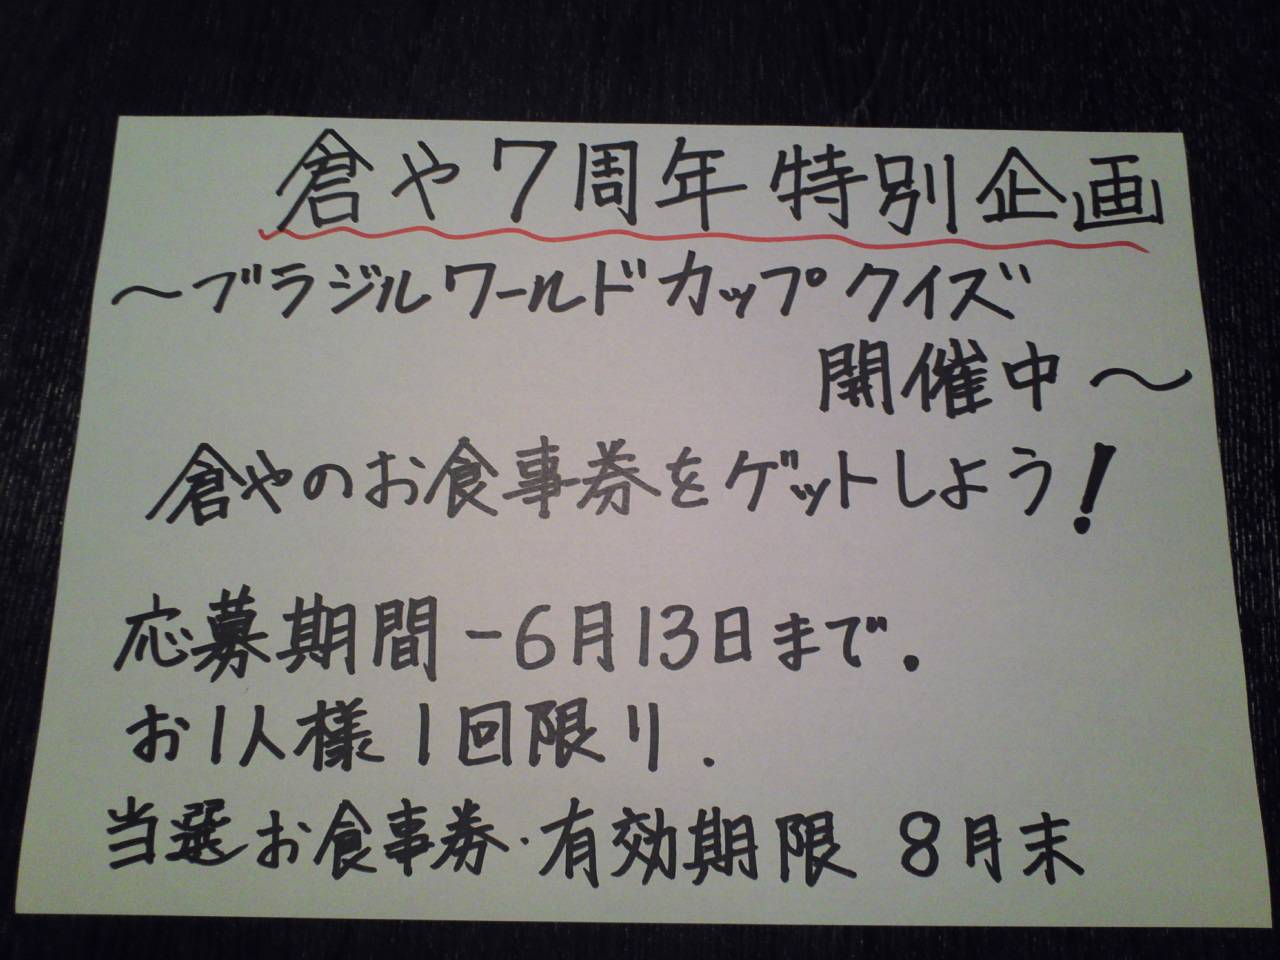 倉や7周年特別企画
～ブラジルワールドカップクイズ
開催中～
倉やのお食事券をゲットしよう!
応募期間-6月13日まで.
お1人様1回限り.
当選お食事券・有効期限 8月末